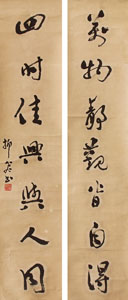 萬物靜觀皆自得
四時佳興與人同